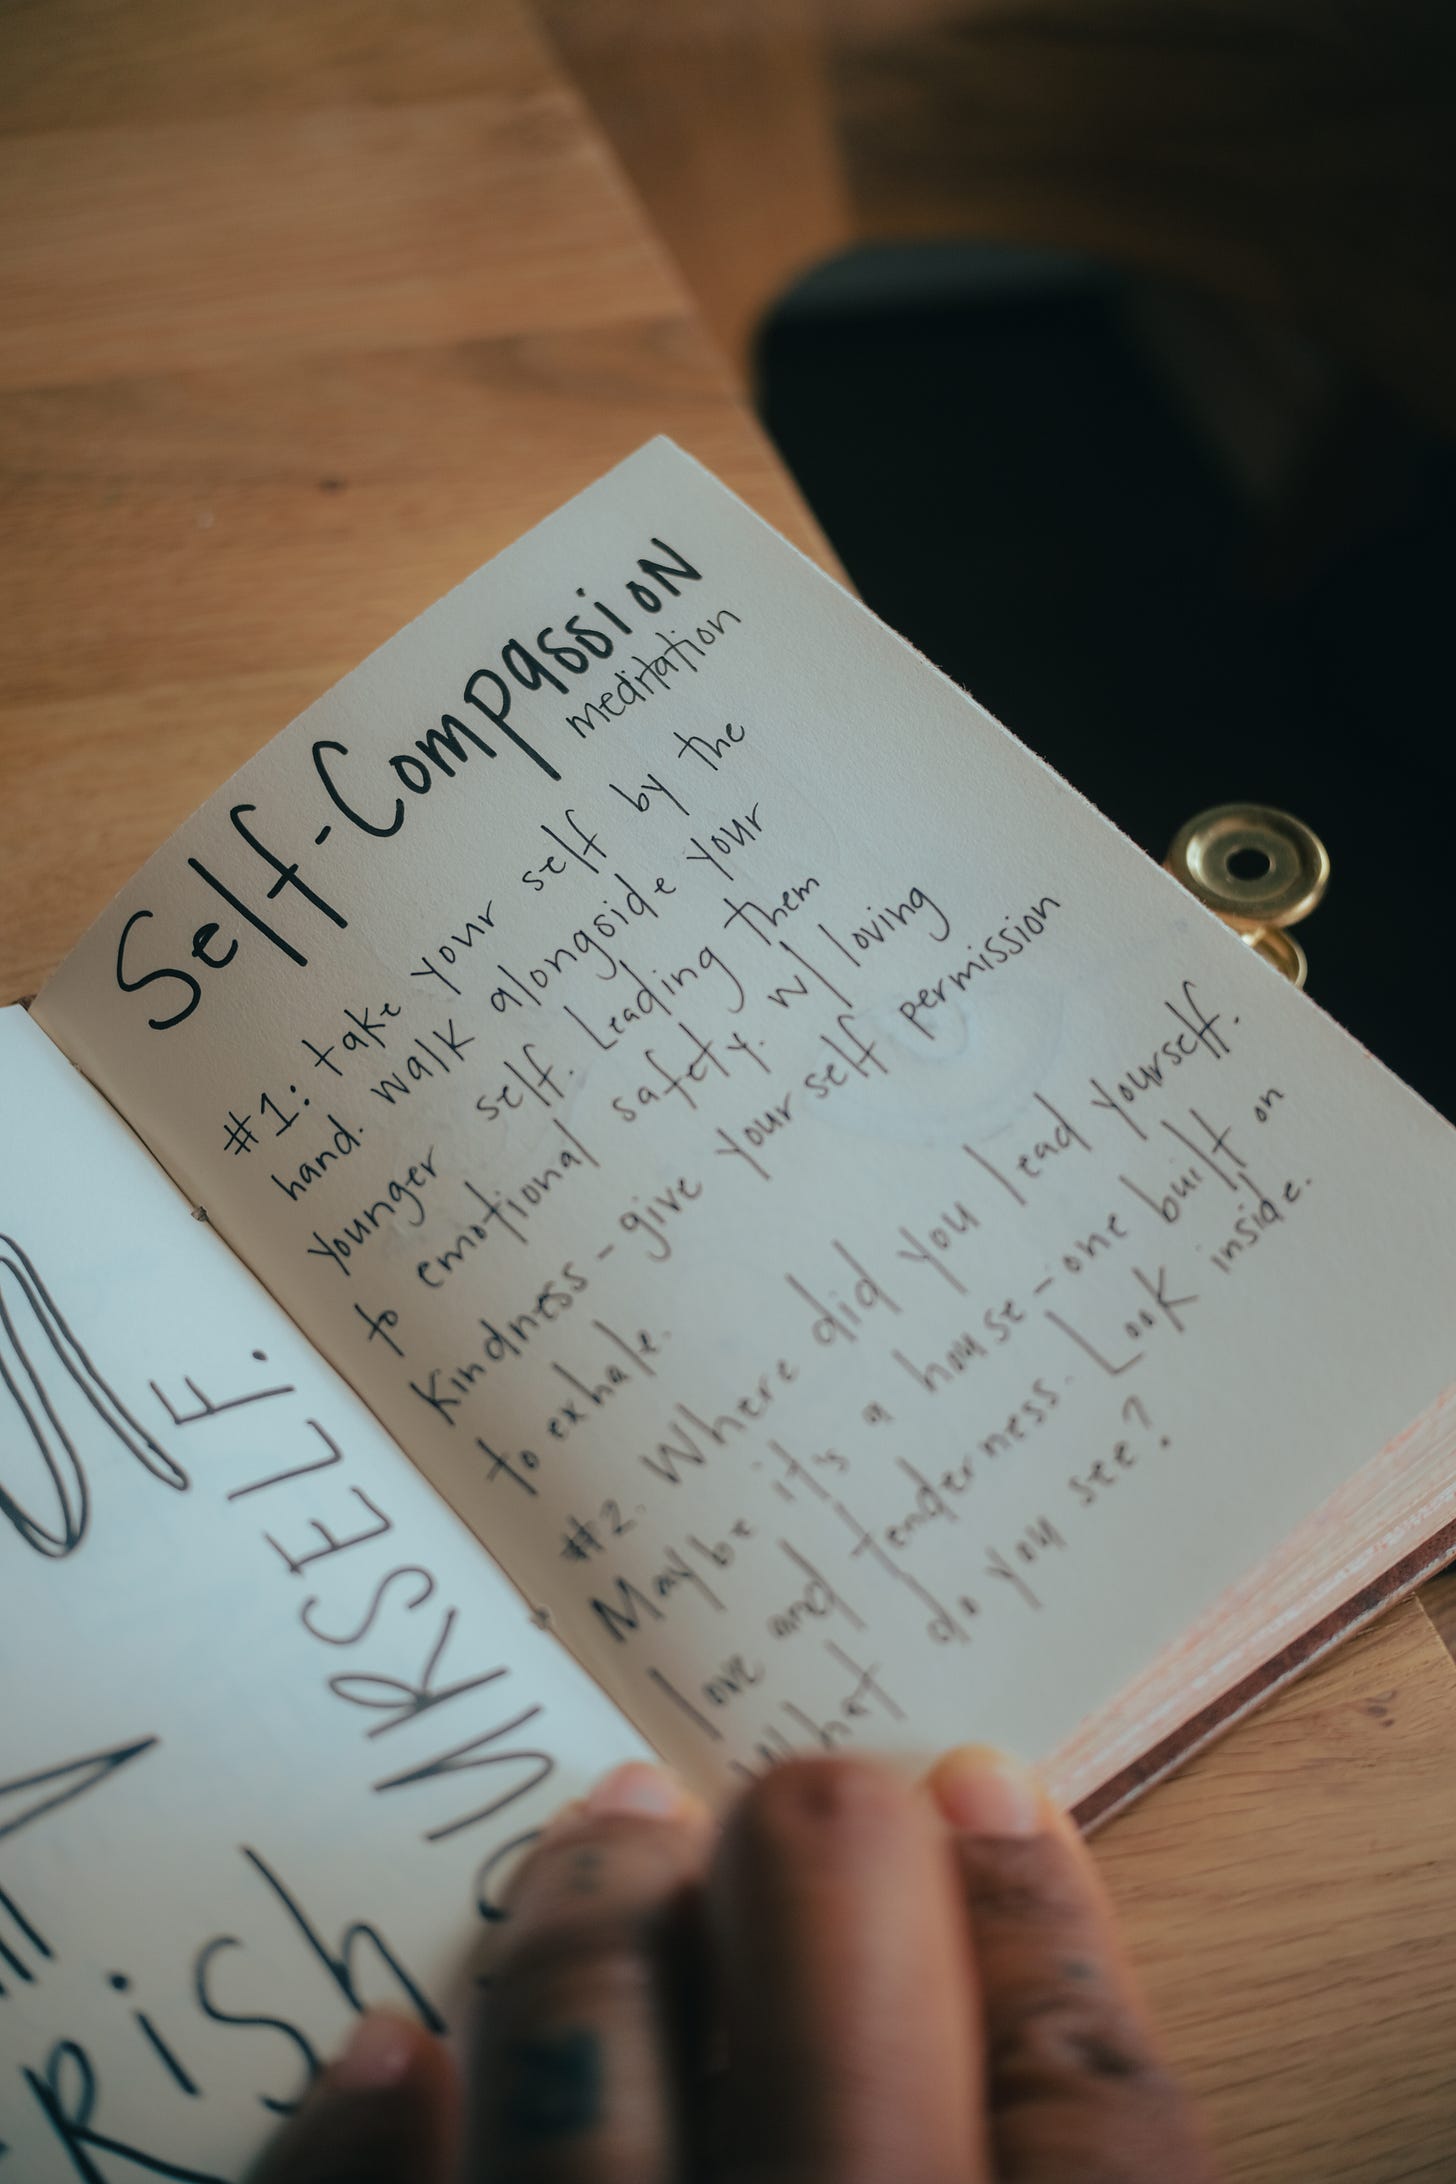 RISH
YOURSELF.
Self-Compassion
meditation
#1: take your self by the
hand. walk alongside your
younger self. Leading them
to emotional safety. w/ loving
kindness - give your self permission
to exhale.
#2. Where did you lead yourself.
Maybe it's a house - one built on
love and tenderness. Look inside.
What do you see?